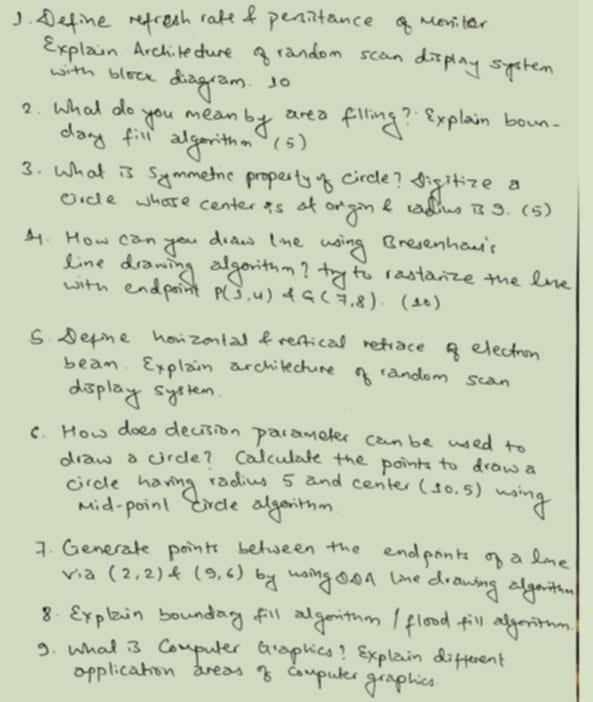 1. Define refresh rate & persistance of Monitor.
Explain Architecture of random scan display system
with block diagram. 10
2. What do you mean by area filling? Explain boun-
dary fill algorithm (5)
3. What is symmetric property of circle? Digitize a
circle whose center is at origin & radius is 9. (5)
4. How can you draw line using Bresenham's
line drawing algorithm? try to rastarize the line
with endpoint P(1,4) & Q(7,8). (10)
5. Define horizontal & vertical retrace of electron
beam. Explain architecture of random scan
display system.
6. How does decision parameter can be used to
draw a circle? Calculate the points to draw a
circle having radius 5 and center (10,5) using
Mid-point circle algorithm.
7. Generate points between the endpoints of a line
via (2,2) & (9,6) by using DDA line drawing algorithm
8. Explain boundary fill algorithm / flood fill algorithm.
9. What is Computer Graphics? Explain different
application areas of computer graphics.